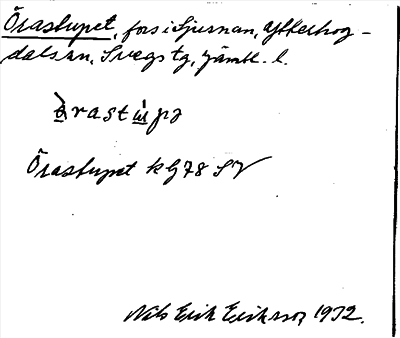 Örastupet, fors i Ljusnan, Ytterhog-
dals sn, Svegs tg, Jämtl. l.
òrastùpə
Örastupet k G78 SV
Nils Erik Eriksson 1932.